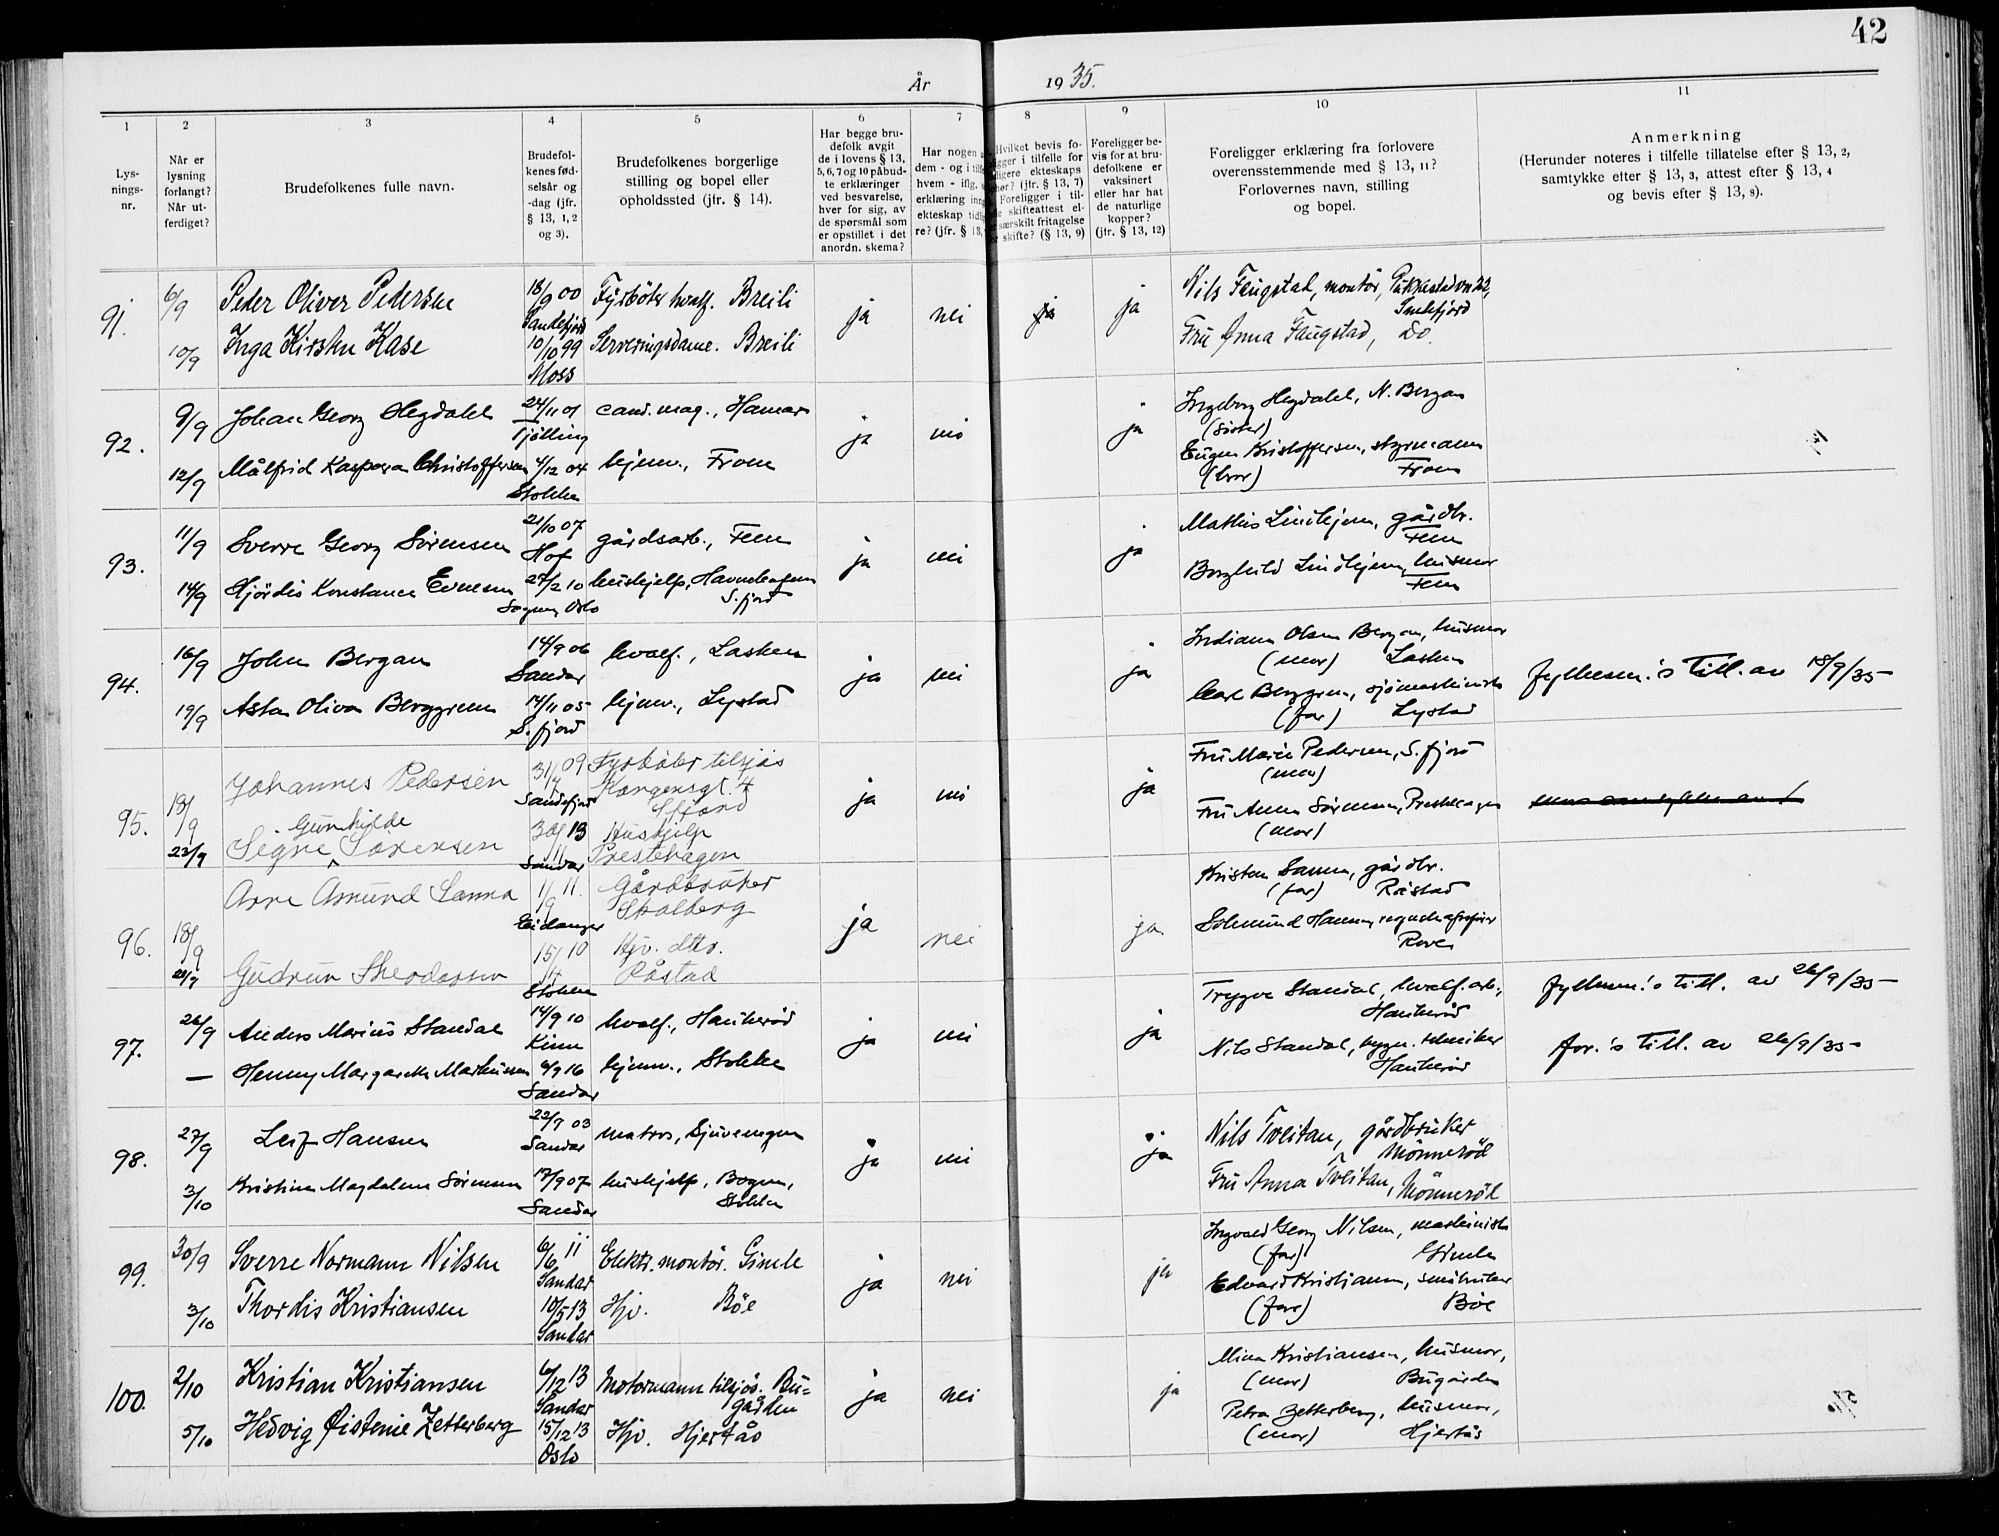 42
År 1935.
1 2 3 4 5 6 7 8 9 10 11
Lys-
nings-
nr.
Når er
lysning
forlangt?
Når ut-
ferdiget?
Brudefolkenes fulle navn.
Brudefol-
kenes fød-
selsår og
-dag (jfr.
§ 13, 1, 2
og 3).
Brudefolkenes borgerlige
stilling og bopel eller
opholdssted (jfr. § 14).
Har begge bru-
defolk avgit
de i lovens § 13,
5, 6, 7 og 10 påbud-
te erklæringer
ved besvarelse,
hver for sig, av
de spørsmål som
er opstillet i det
anordn. skema?
Har nogen
dem - og i
hvem - iflg.
erklæring
ekteskap
re? (jfr. §
Hvilket bevis fo-
i tilfelle for
ekteskaps
(jfr. § 13, 7)
Foreligger i til-
skifteattest el-
særskilt fritagelse
skifte? (§ 13, 9)
Foreligger be-
vis for at bru-
defolkene er
vaksinert
eller har hat
de naturlige
kopper?
(jfr. § 13, 12)
Foreligger erklæring fra forlovere
overensstemmende med § 13, 11?
Forlovernes navn, stilling
og bopel.
Anmerkning
(Herunder noteres i tilfelle tillatelse efter § 13, 2,
samtykke efter § 13, 3, attest efter § 13, 4
og bevis efter § 13, 8).
91. 6/9 Peder Oliver Pedersen 18/9 00 Fyrbøter hvalf. Breili ja nei ja ja Nils Faugstad, montör,
Sandefjord Sandefjord
10/9 Inga Kirsten Kase 10/10 99 Serveringsdame. Breili Fru Anna Faugstad, Do.
Moss
92. 9/9 Johan Georg Hegdahl 24/11 01 cand. mag., Hamar ja nei ja Ingeborg Hegdahl, N. Bergan
Tjölling (söster)
12/9 Målfrid Kaspara Christoffersen 4/12 04 hjemv., From Eugen Kristoffersen, styrmann
Stokke (bror) From
93. 11/9 Sverre Georg Sörensen 21/10 07 gårdsarb., Fem ja nei ja Mathis Lindhjem, gårdbr.
Hof Fem
14/9 Hjördis Konstance Evensen 27/2 10 hushjelp, Borghild Lindhjem, husmor
Oslo S.fjord Fem
94. 16/9 John Bergan 14/9 06 hvalf., Lasken ja nei ja Indiana Olsen Bergan, husmor
Sandar (mor) Lasken
19/9 Asta Oliva Berggren 14/11 05 hjemv., Lystad Carl Berggren, sjömaskinist Fylkesm.'s till. av 18/9/35
S.fjord (far) Lystad
95. 18/9 Johannes Pedersen 31/7 09 Fyrböter tilsjös ja nei ja Fru Marie Pedersen, S.fjord
Sandefjord Kongensgt. 4 (mor)
Sfjord
23/9 Signe Gunhilde Sörensen 30/11 13 Hushjelp Fru Anna Sörensen, Prestehagen
Sandar Prestehagen (mor)
96. 18/9 Arne Asmund Sanna 1/9 11. Gårdbruker ja nei ja Kristen Sanna, gårdbr.
Eidanger Skolberg (far) Råstad
Gudrun Theodorsen 15/4 10 Hjv. dttr. Solmund Hansen,
Stokke Råstad
97. 26/9 Anders Marius Standal 14/9 10 hvalf., Haukerød ja nei ja Trygve Standal, hvalf. arb., Fylkesm.'s till. av 26/9/35
Kinn Haukerød
— Henny Margarethe Markussen 4/9 16 hjemv., Stokke Nils Standal, bygn. tekniker for.'s till. av 26/9/35
Sandar Haukerød
98. 27/9 Leif Hansen 22/7 03 matros, ja nei ja Nils Tveitan, gårdbruker
Sandar Mönneröd
3/10 Kristine Magdalene Sörensen 17/9 07 hushjelp, Bogen, Fru Anna Tveitan, Mönneröd
Sandar Stokke
99. 30/9 Sverre Normann Nilsen 6/6 11 Elektr. montör. Gimle ja nei ja Ingvald Georg Nilsen, maskinist
Sandar (far) Gimle
3/10 Thordis Kristiansen 10/5 13 Hjv. Böe Edvard Kristiansen, småbruker
Sandar (far) Böe
100. 2/10 Kristian Kristiansen 6/12 13 Motormann tilsjös. Bu= ja nei ja Mina Kristiansen, husmor,
Sandar gården (mor) Bugården
5/10 Hedvig Øistenie Zetterberg 15/12 13 Hjv. Hjertås Petra Zetterberg, husmor,
Oslo (mor) Hjertås